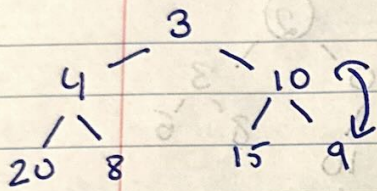 3
4 10
20 8 15 9